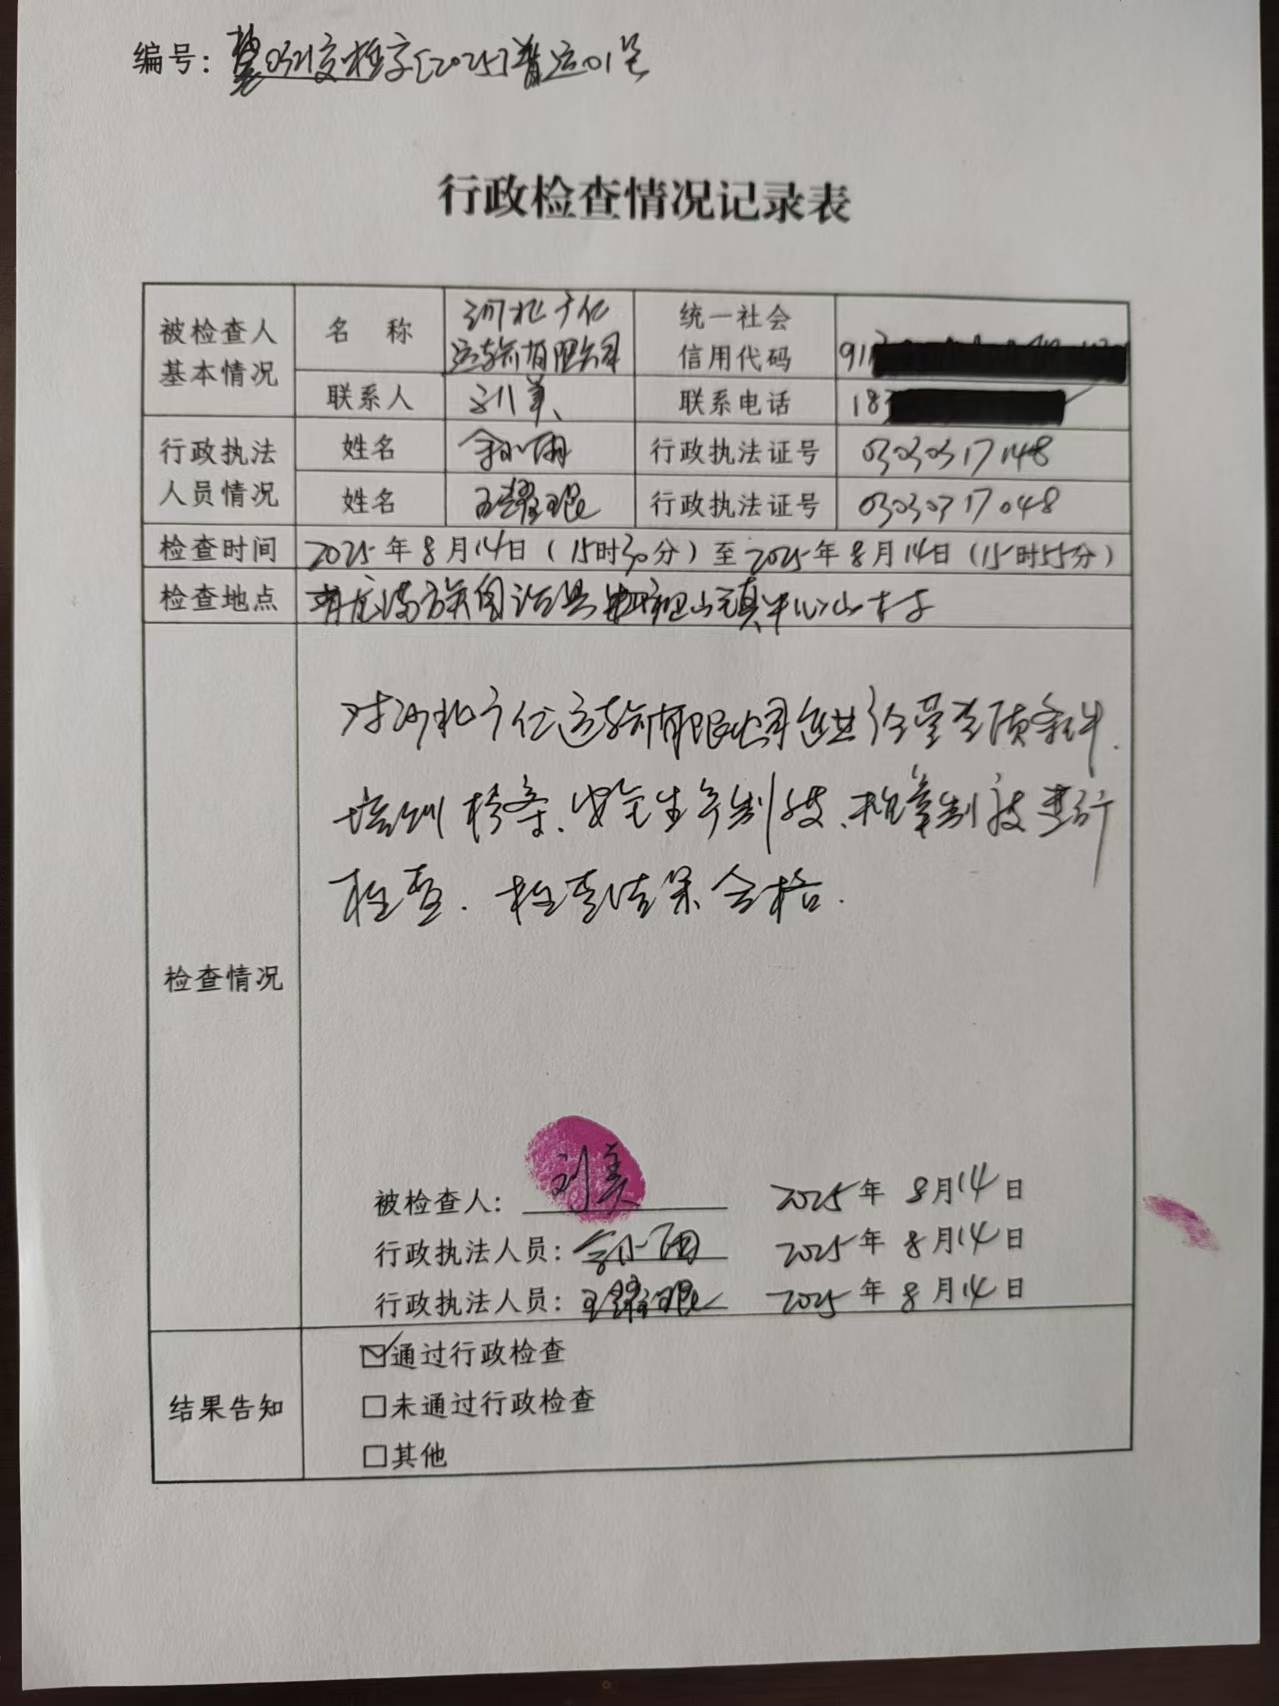 编号：冀0321交检字[2025]普运01号
行政检查情况记录表
被检查人基本情况 名 称 河北广亿运输有限公司 统一社会信用代码 911
联系人 刘美 联系电话 18
行政执法人员情况 姓名 小雨 行政执法证号 03030317148
姓名 王 行政执法证号 03030317048
检查时间 2025年8月14日（15时30分）至2025年8月14日（15时55分）
检查地点 青龙满族自治县祖山镇牛心山村
对河北广亿运输有限公司 经营资质条件、
培训档案、安全生产制度、规章制度进行
检查．检查结果合格．
检查情况
被检查人：刘美 2025年8月14日
行政执法人员：小雨 2025年8月14日
行政执法人员：王 2025年8月14日
结果告知
☑通过行政检查
□未通过行政检查
□其他